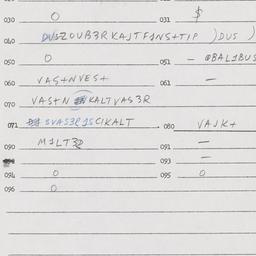 030 0 031 $
040 DUSZOUB3R KAJTF1NS+TIP )DUS )
050 0 051 - @BAL1BUS
060 VAS+NVES+ 061 -
070 VAS+N KALTVAS3R
071 SVAS3R1SCIKALT 080 VAJK+
090 M1LT3R 091 -
093 -
094 0 095 0
096 0